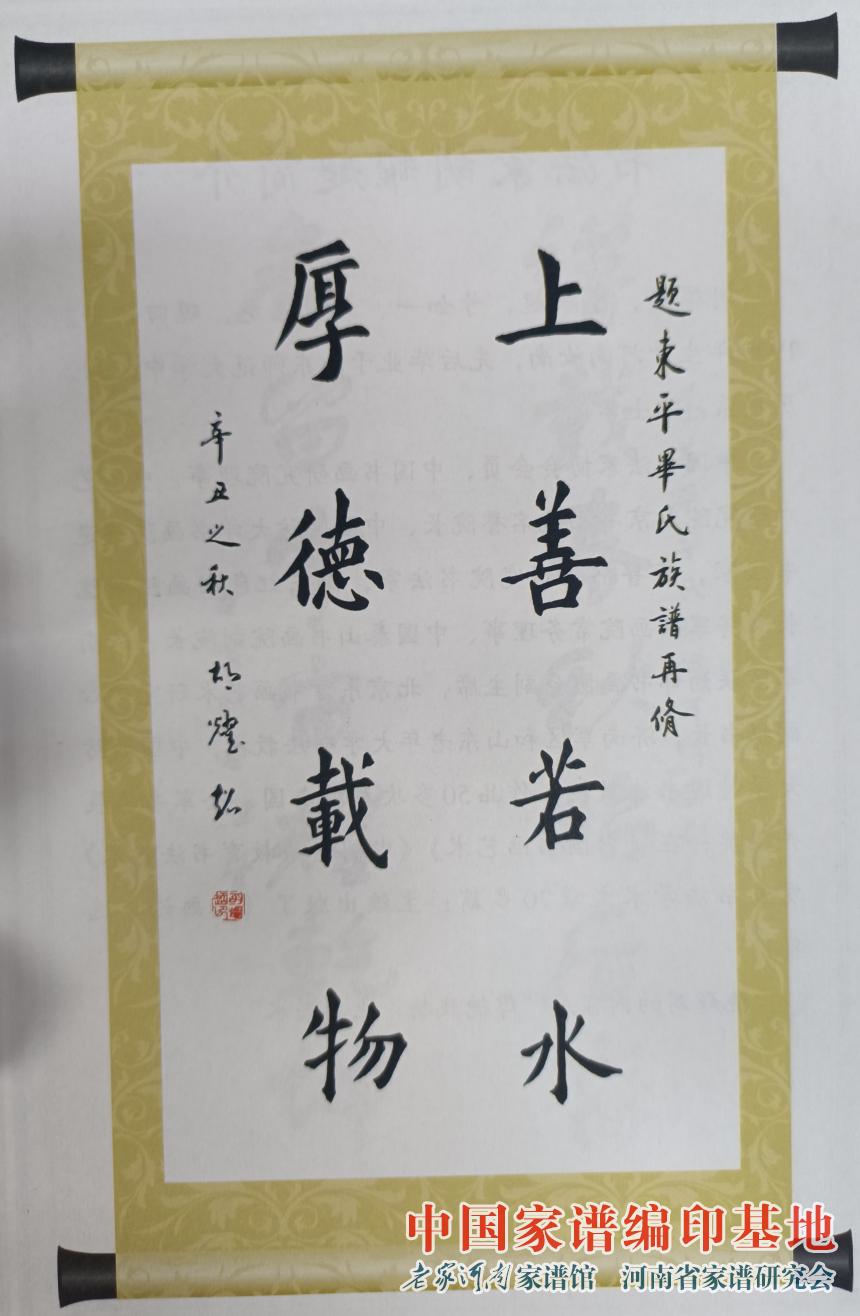 題東平畢氏族譜再脩
上善若水
厚德載物
辛丑之秋
中国家谱编印基地
老家河南家谱馆 河南省家谱研究会